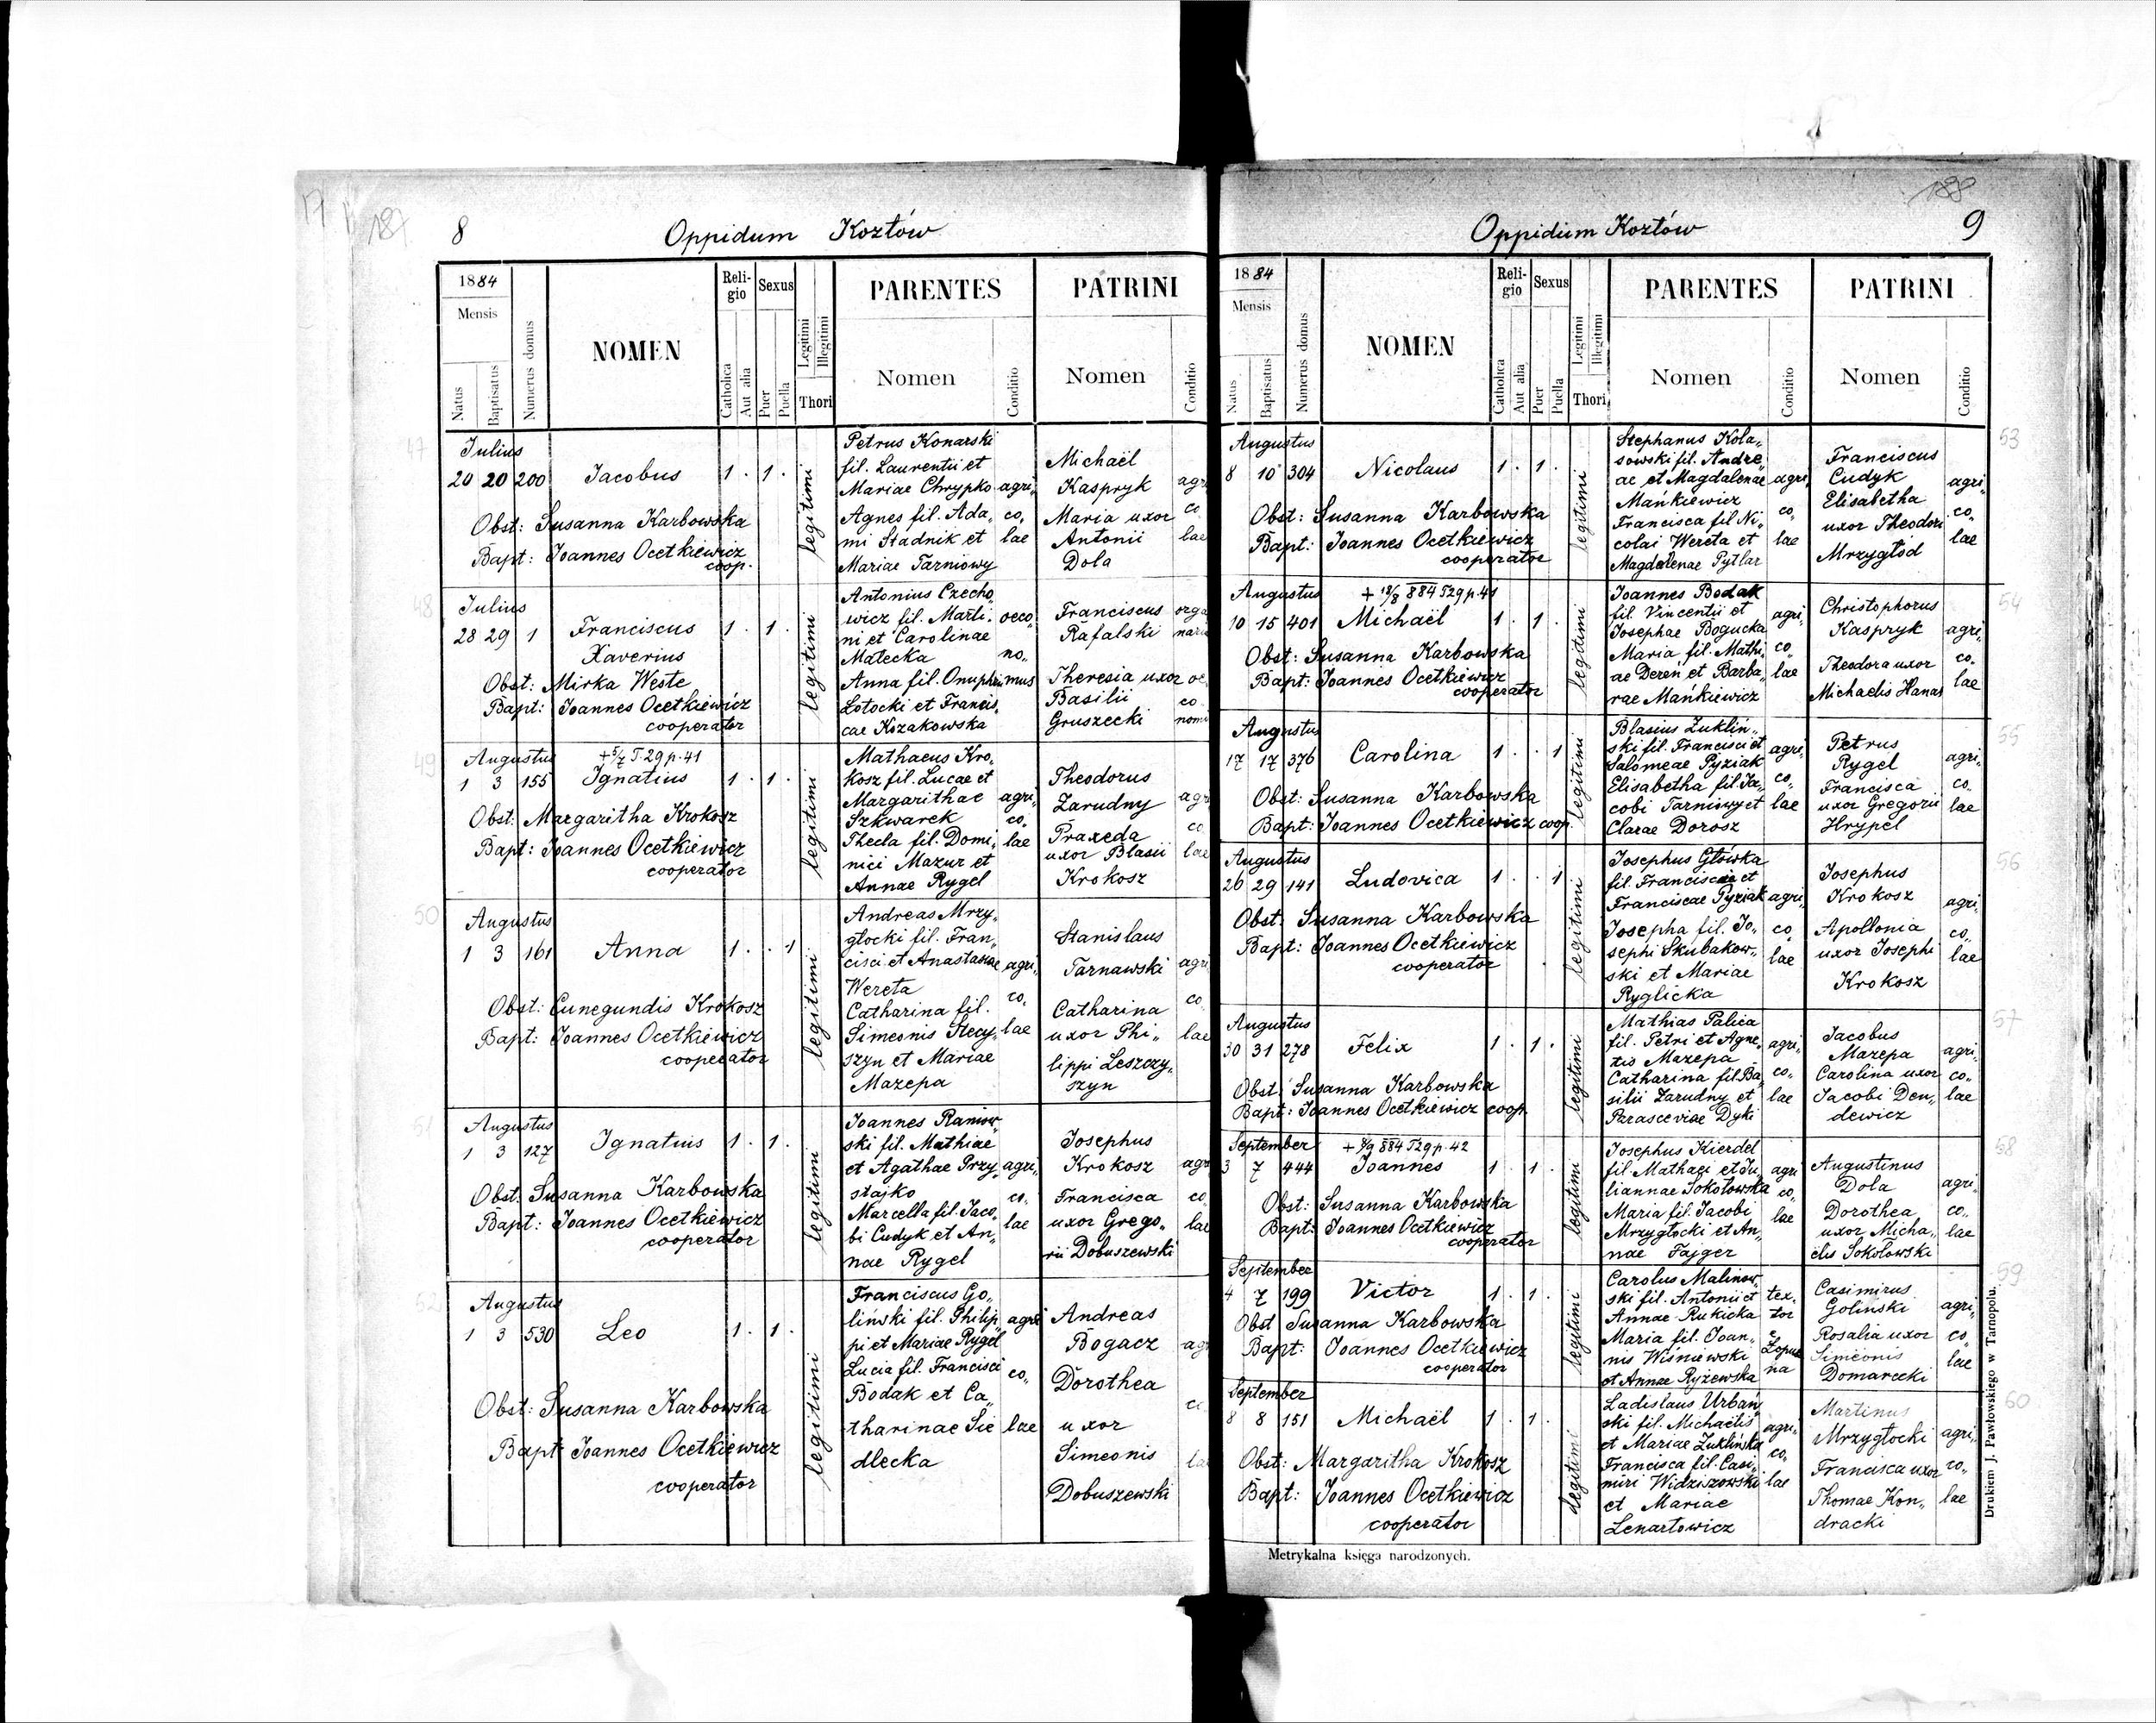 187
8
Oppidum Kozłów
1884
Mensis
Natus
Baptisatus
Numerus domus
NOMEN
Reli-
gio
Catholica
Aut alia
Sexus
Puer
Puella
Legitimi
Illegitimi
Thori
PARENTES
Nomen
Conditio
PATRINI
Nomen
Conditio
47
Julius
20 20 200 Jacobus 1 . 1 .
Obst: Susanna Karbowska
Bapt: Joannes Ocetkiewicz
coop.
legitimi
Petrus Konarski
fil. Laurentii et
Mariae Chrypko
Agnes fil. Ada„
mi Stadnik et
Mariae Tarniowy
agri„
co„
lae
Michaël
Kaspryk
Maria uxor
Antonii
Dola
agri
co
lae
48
Julius
28 29 1 Franciscus 1 . 1 .
Xaverius
Obst: Mirka Weste
Bapt: Joannes Ocetkiewicz
cooperator
legitimi
Antonius Czecho„
wicz fil. Marti„
ni et Carolinae
Małecka
Anna fil. Onuphri
Łotocki et Francis„
cae Kozakowska
oeco„
no„
mus
Franciscus
Rafalski
Theresia uxor
Basilii
Gruszecki
orga
naris
oe
co
nomi
49
Augustus
+ 5/7 T.29 p. 41
1 3 155 Ignatius 1 . 1 .
Obst: Margaritha Krokosz
Bapt: Joannes Ocetkiewicz
cooperator
legitimi
Mathaeus Kro„
kosz fil. Lucae et
Margarithae
Szkwarek
Thecla fil. Domi„
nici Mazur et
Annae Rygel
agri„
co„
lae
Theodorus
Zarudny
Praxeda
uxor Blasii
Krokosz
agr
co
lae
50
Augustus
1 3 161 Anna 1 . . 1
Obst: Cunegundis Krokosz
Bapt: Joannes Ocetkiewicz
cooperator
legitimi
Andreas Mrzy„
głocki fil. Fran„
cisci et Anastasiae
Wereta
Catharina fil.
Simeonis Stecy„
szyn et Mariae
Mazepa
agri„
co„
lae
Stanislaus
Tarnawski
Catharina
uxor Phi„
lippi Leszczy„
szyn
agri
co
lae
51
Augustus
1 3 127 Ignatius 1 . 1 .
Obst: Susanna Karbowska
Bapt: Joannes Ocetkiewicz
cooperator
legitimi
Joannes Raniow„
ski fil. Mathiae
et Agathae Przy„
stajko
Marcella fil. Jaco„
bi Cudyk et An„
nae Rygel
agri„
co„
lae
Josephus
Krokosz
Francisca
uxor Grego„
rii Dobuszewski
agr
co
lae
52
Augustus
1 3 530 Leo 1 . 1 .
Obst: Susanna Karbowska
Bapt Joannes Ocetkiewicz
cooperator
legitimi
Franciscus Go„
liński fil. Philip„
pi et Mariae Rygel
Lucia fil. Francisci
Bodak et Ca„
tharinae Sie
dlecka
agri
co„
lae
Andreas
Bogacz
Dorothea
uxor
Simeonis
Dobuszewski
agr
co
la
188
9
Oppidum Kozłów
1884
Mensis
Natus
Baptisatus
Numerus domus
NOMEN
Reli-
gio
Catholica
Aut alia
Sexus
Puer
Puella
Legitimi
Illegitimi
Thori
PARENTES
Nomen
Conditio
PATRINI
Nomen
Conditio
53
Augustus
8 10 304 Nicolaus 1 . 1 .
Obst: Susanna Karbowska
Bapt: Joannes Ocetkiewicz
cooperator
legitimi
Stephanus Kola„
sowski fil. Andre„
ae et Magdalenae
Mańkiewicz
Francisca fil Ni„
colai Wereta et
Magdalenae Pytlar
agri
co„
lae
Franciscus
Cudyk
Elisabetha
uxor Theodori
Mrzygłód
agri„
co„
lae
54
Augustus
+ 18/8 884 T29 p. 41
10 15 401 Michaël 1 . 1 .
Obst: Susanna Karbowska
Bapt: Joannes Ocetkiewicz
cooperator
legitimi
Joannes Bodak
fil. Vincentii et
Josephae Bogucka
Maria fil. Mathi„
ae Dereń et Barba„
rae Mańkiewicz
agri„
co„
lae
Christophorus
Kaspryk
Theodora uxor
Michaelis Hanas
agri„
co„
lae
55
Augustus
17 17 376 Carolina 1 . . 1
Obst: Susanna Karbowska
Bapt: Joannes Ocetkiewicz coop.
legitimi
Blasius Żukliń„
ski fil. Francisci et
Salomeae Pyziak
Elisabetha fil. Ja„
cobi Tarniowy et
Clarae Dorosz
agri„
co„
lae
Petrus
Rygel
Francisca
uxor Gregorii
Hrypel
agri„
co„
lae
56
Augustus
26 29 141 Ludovica 1 . . 1
Obst. Susanna Karbowska
Bapt: Joannes Ocetkiewicz
cooperator
legitimi
Josephus Główka
fil. Franciscae et
Franciscae Pyziak
Josepha fil. Jo„
sephi Skubakow„
ski et Mariae
Ryglicka
agri„
co„
lae
Josephus
Krokosz
Apollonia
uxor Josephi
Krokosz
agri„
co„
lae
57
Augustus
30 31 278 Felix 1 . 1 .
Obst: Susanna Karbowska
Bapt: Joannes Ocetkiewicz coop.
legitimi
Mathias Palica
fil. Petri et Agne„
tis Mazepa
Catharina fil. Ba„
silii Zarudny et
Parasceviae Dyki
agri„
co„
lae
Jacobus
Mazepa
Carolina uxor
Jacobi Den„
dewicz
agri„
co„
lae
58
September
+ 8/9 884 T29 p. 42
3 7 444 Joannes 1 . 1 .
Obst: Susanna Karbowska
Bapt: Joannes Ocetkiewicz
cooperator
legitimi
Josephus Kierdel
fil. Mathaei et Ju„
liannae Sokołowska
Maria fil. Jacobi
Mrzygłocki et An„
nae Fajger
agri
co„
lae
Augustinus
Dola
Dorothea
uxor Micha„
elis Sokołowski
agri„
co„
lae
59
September
4 7 199 Victor 1 . 1 .
Obst Susanna Karbowska
Bapt: Joannes Ocetkiewicz
cooperator
legitimi
Carolus Malinow„
ski fil. Antonii et
Annae Rukicka
Maria fil. Joan„
nis Wiśniewski
et Annae Ryżewska
tex„
tor
Casimirus
Goliński
Rosalia uxor
Simeonis
Domarecki
agri„
co„
lae
60
September
8 8 151 Michaël 1 . 1 .
Obst: Margaritha Krokosz
Bapt: Joannes Ocetkiewicz
cooperator
legitimi
Ladislaus Urbań„
ski fil. Michaelis
et Mariae Żuklińska
Francisca fil. Casi„
miri Widziszowski
et Mariae
Lenartowicz
agri„
co„
lae
Martinus
Mrzygłocki
Francisca uxor
Thomae Kon„
dracki
agri„
co„
lae
Metrykalna księga narodzonych.
Drukiem J. Pawłowskiego w Tarnopolu.